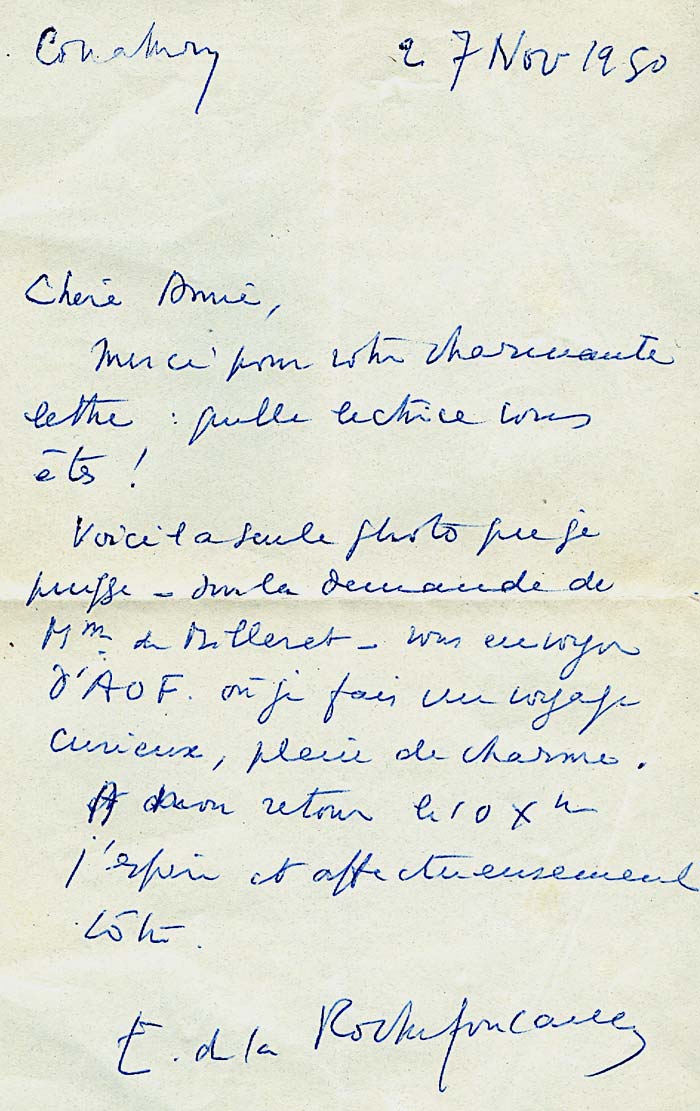 Conakry 27 Nov 1950
Chère Annie,
Merci pour votre charmante
lettre : quelle lectrice vous
êtes !
Voici la seule photo que je
puisse – sur la demande de
Mme de Milleret – vous envoyer
d'AOF. où je fais un voyage
curieux, plein de charme.
A mon retour le 10 Xbre
j'espère et affectueusement
vôtre.
E. de la Rochefoucauld